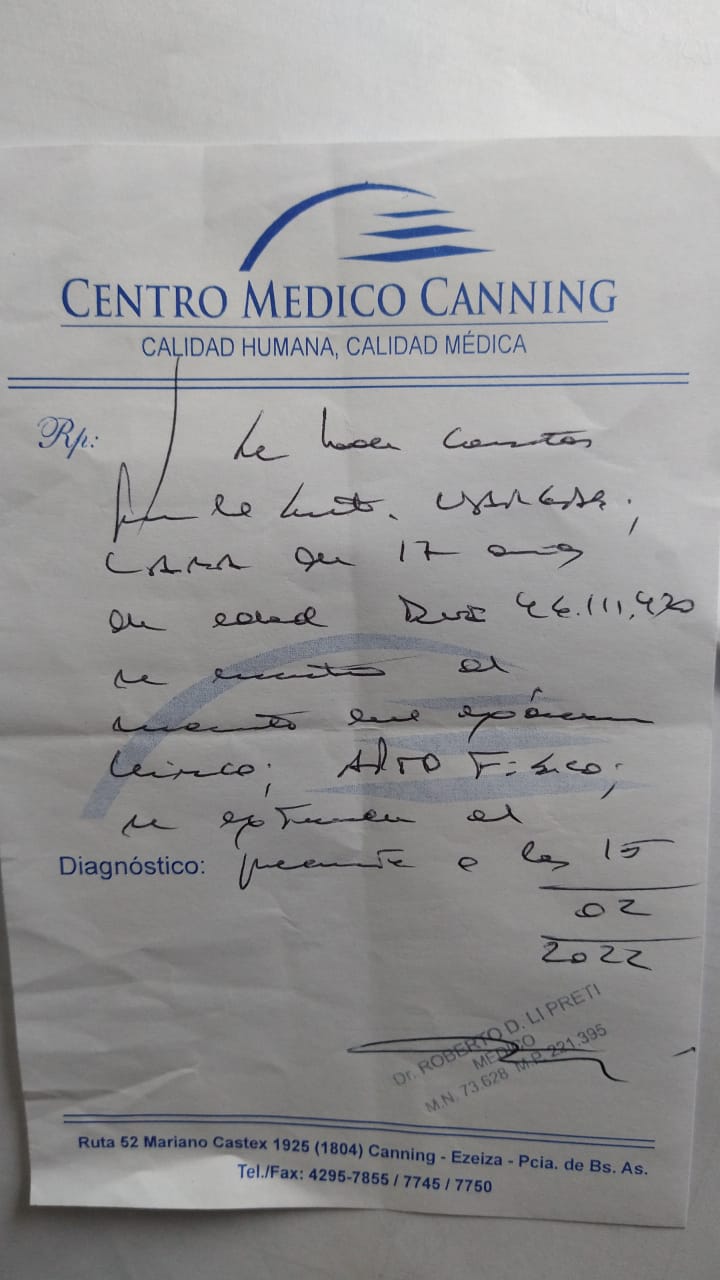 CENTRO MEDICO CANNING
CALIDAD HUMANA, CALIDAD MÉDICA
Rp:
hace constar
que la Srta. VARGAS,
LARA de 17 años
de edad DNI 46.111.420
se encuentra al
momento del exámen
clínico; APTO FISICO;
se extiende el
Diagnóstico: presente a los 15
02
2022
Dr. ROBERTO D. LI PRETI
MEDICO
M.N. 73.628 M.P. 221.395
Ruta 52 Mariano Castex 1925 (1804) Canning - Ezeiza - Pcia. de Bs. As.
Tel./Fax: 4295-7855 / 7745 / 7750